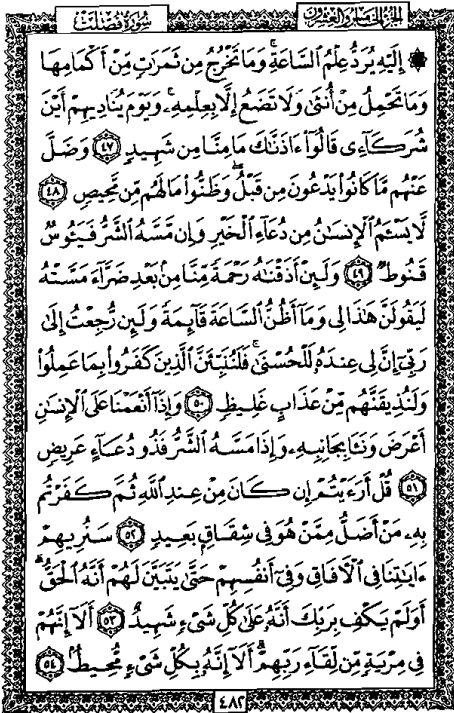 سُورَةُ فُصِّلَتْ
الجُزْءُ الخَامِسُ وَالعِشْرُونَ
۞ إِلَيْهِ يُرَدُّ عِلْمُ ٱلسَّاعَةِ ۚ وَمَا تَخْرُجُ مِن ثَمَرَٰتٍ مِّنْ أَكْمَامِهَا
وَمَا تَحْمِلُ مِنْ أُنثَىٰ وَلَا تَضَعُ إِلَّا بِعِلْمِهِۦ ۚ وَيَوْمَ يُنَادِيهِمْ أَيْنَ
شُرَكَآءِى قَالُوٓا۟ ءَاذَنَّٰكَ مَا مِنَّا مِن شَهِيدٍ ٤٧ وَضَلَّ
عَنْهُم مَّا كَانُوا۟ يَدْعُونَ مِن قَبْلُ ۖ وَظَنُّوا۟ مَا لَهُم مِّن مَّحِيصٍ ٤٨
لَّا يَسْـَٔمُ ٱلْإِنسَٰنُ مِن دُعَآءِ ٱلْخَيْرِ وَإِن مَّسَّهُ ٱلشَّرُّ فَيَـُٔوسٌ
قَنُوطٌ ٤٩ وَلَئِنْ أَذَقْنَٰهُ رَحْمَةً مِّنَّا مِنۢ بَعْدِ ضَرَّآءَ مَسَّتْهُ
لَيَقُولَنَّ هَٰذَا لِى وَمَآ أَظُنُّ ٱلسَّاعَةَ قَآئِمَةً وَلَئِن رُّجِعْتُ إِلَىٰ
رَبِّىٓ إِنَّ لِى عِندَهُۥ لَلْحُسْنَىٰ ۚ فَلَنُنَبِّئَنَّ ٱلَّذِينَ كَفَرُوا۟ بِمَا عَمِلُوا۟
وَلَنُذِيقَنَّهُم مِّنْ عَذَابٍ غَلِيظٍ ٥٠ وَإِذَآ أَنْعَمْنَا عَلَى ٱلْإِنسَٰنِ
أَعْرَضَ وَنَـَٔا بِجَانِبِهِۦ وَإِذَا مَسَّهُ ٱلشَّرُّ فَذُو دُعَآءٍ عَرِيضٍ
٥١ قُلْ أَرَءَيْتُمْ إِن كَانَ مِنْ عِندِ ٱللَّهِ ثُمَّ كَفَرْتُم
بِهِۦ مَنْ أَضَلُّ مِمَّنْ هُوَ فِى شِقَاقٍۭ بَعِيدٍ ٥٢ سَنُرِيهِمْ
ءَايَٰتِنَا فِى ٱلْءَافَاقِ وَفِىٓ أَنفُسِهِمْ حَتَّىٰ يَتَبَيَّنَ لَهُمْ أَنَّهُ ٱلْحَقُّ ۗ
أَوَلَمْ يَكْفِ بِرَبِّكَ أَنَّهُۥ عَلَىٰ كُلِّ شَىْءٍ شَهِيدٌ ٥٣ أَلَآ إِنَّهُمْ
فِى مِرْيَةٍ مِّن لِّقَآءِ رَبِّهِمْ ۗ أَلَآ إِنَّهُۥ بِكُلِّ شَىْءٍ مُّحِيطٌۢ ٥٤
٤٨٢